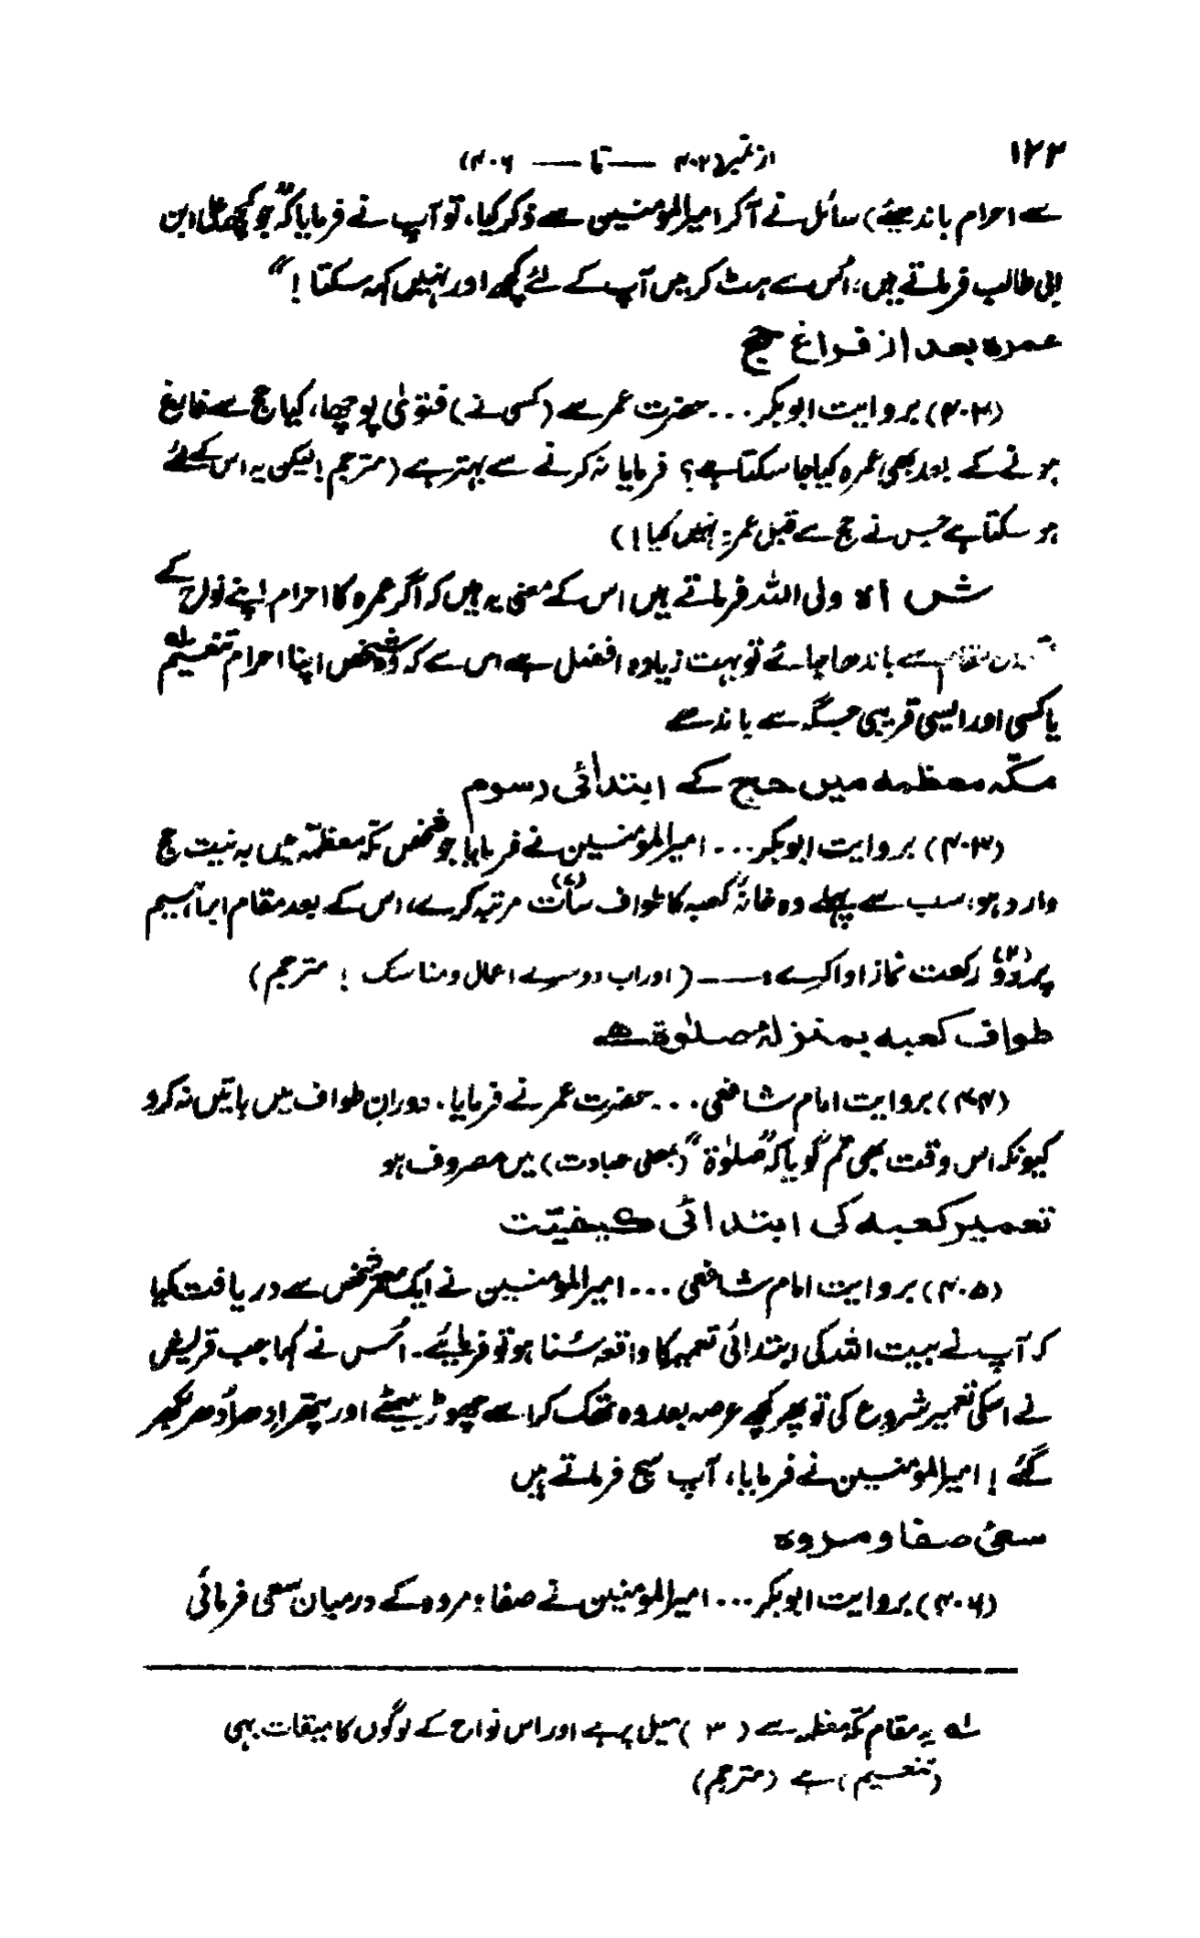 ۱۲۲
از نمبر (۴۰۲ —— تا —— ۴۰۶)
سے احرام باندھیئے) سائل نے آکر امیرالمؤمنین سے ذکر کیا، تو آپ نے فرمایا کہ "جو کچھ علی ابن
ابی طالب فرماتے ہیں؛ اُس سے ہٹ کر میں آپ کے لئے کچھ اور نہیں کہہ سکتا!"
عمرہ بعد از فراغ حج
(۴۰۲) بروایت ابوبکر... حضرت عمر سے (کسی نے) فتوٰی پوچھا، کیا حج سے فارغ
ہونے کے بعد بھی عمرہ کیا جا سکتا ہے؟ فرمایا نہ کرنے سے بہتر ہے (مترجم! لیکن یہ اس کے لئے
ہو سکتا ہے جس نے حج سے قبل عمرہ نہیں کیا!)
شاہ ولی اللہ فرماتے ہیں اس کے معنی یہ ہیں کہ اگر عمرہ کا احرام اپنے نواح کے
مقام سے باندھا جائے تو بہت زیادہ افضل ہے اس سے کہ وہ شخص اپنا احرام تنعیم لہ
یا کسی اور ایسی قریبی جگہ سے باندھے
مکّہ معظمہ میں حج کے ابتدائی رسوم
(۴۰۳) بروایت ابوبکر... امیرالمؤمنین نے فرمایا جو شخص مکّہ معظمّہ میں بہ نیت حج
وارد ہو، سب سے پہلے وہ خانۂ کعبہ کا طواف سات (۷) مرتبہ کرے، اس کے بعد مقام ابراہیم
پر دو (۲) رکعت نماز ادا کرے؛ —— (اور اب دوسرے اعمال و مناسک! مترجم)
طواف کعبہ بمنزلۂ صلوٰۃ ہے
(۴۰۴) بروایت امام شافعی... حضرت عمر نے فرمایا. دورانِ طواف میں باتیں نہ کرو
کیونکہ اس وقت بھی تم گویا کہ "صلوٰۃ" (بمعنی عبادت) میں مصروف ہو
تعمیر کعبہ کی ابتدائی کیفیّت
(۴۰۵) بروایت امام شافعی... امیرالمؤمنین نے ایک معمر شخص سے دریافت کیا
کہ آپ نے بیت اللہ کی ابتدائی تعمیر کا واقعہ سُنا ہو تو فرمایئے. اُس نے کہا جب قریش
نے اسکی تعمیر شروع کی تو پھر کچھ عرصہ بعد وہ تھک کر اسے چھوڑ بیٹھے اور پتھر اِدھر اُدھر بکھر
گئے! امیرالمؤمنین نے فرمایا، آپ سچ فرماتے ہیں
سعیٔ صفا و مروہ
(۴۰۶) بروایت ابوبکر... امیرالمؤمنین نے صفا و مروہ کے درمیان سعی فرمائی
لہ یہ مقام مکّہ معظمہ سے (۳) میل پر ہے اور اس نواح کے لوگوں کا میقات یہی
(تنعیم) ہے (مترجم)